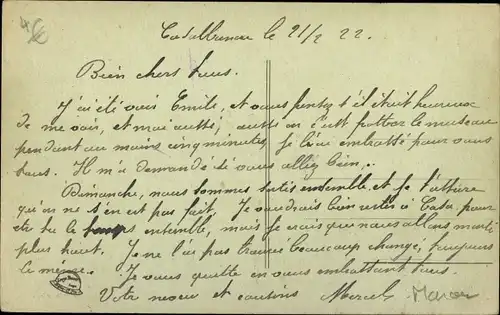 4€
Casablanca le 21/2 22.
Bien chers tous.
J'ai été voir Emile, et vous pensez s'il était heureux
de me voir, et moi aussi, aussi on s'est frotter le museau
pendant au moins cinq minutes, je l'ai embrassé pour vous
tous. Il m'a demandé si vous alliez bien.
Dimanche, nous sommes sortis ensemble et je t'assure
qu'on ne s'en est pas fait. Je voudrais bien rester à Casa, pour
ensemble, mais je crois que nous allons monter
plus haut. Je ne l'ai pas trouvé beaucoup changé, toujours
le même. Je vous quitte en vous embrassant tous.
Votre neveu et cousins Marcel
Maroc